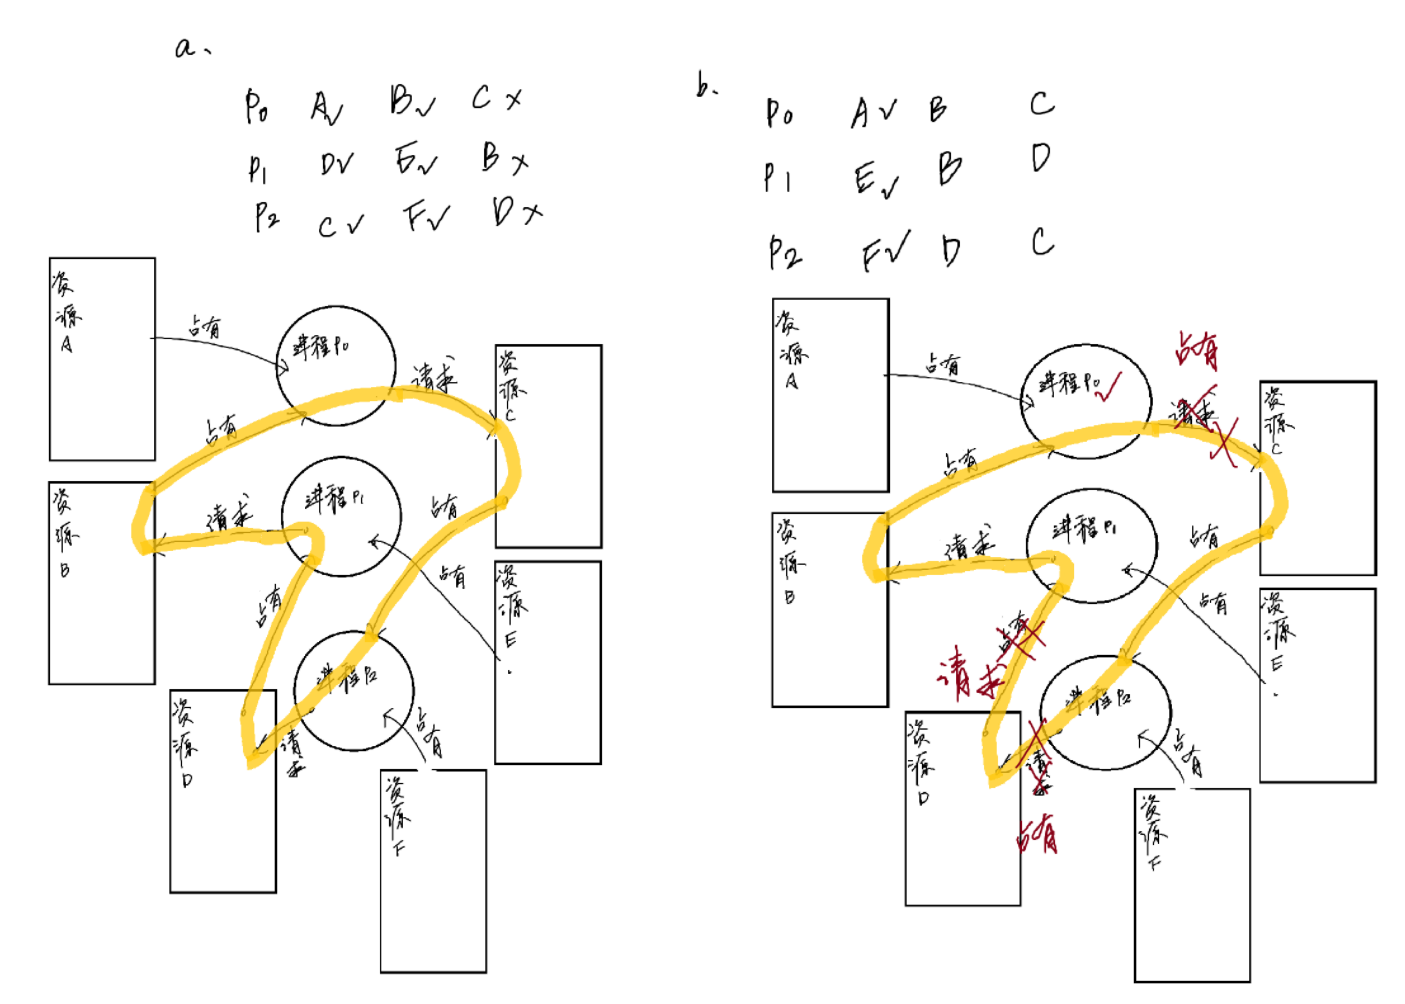 a.
P0 A✓ B✓ C×
P1 D✓ E✓ B×
P2 C✓ F✓ D×
资源A
占有
进程P0
请求
资源C
占有
资源B
请求
进程P1
占有
占有
占有
资源E.
进程P2
资源D
请求
占有
资源F
b.
P0 A✓ B C
P1 E✓ B D
P2 F✓ D C
资源A
占有
进程P0✓
占有
请求
资源C
占有
资源B
请求
进程P1
占有
占有
占有
请求
资源E.
进程P2
资源D
请求
占有
占有
资源F